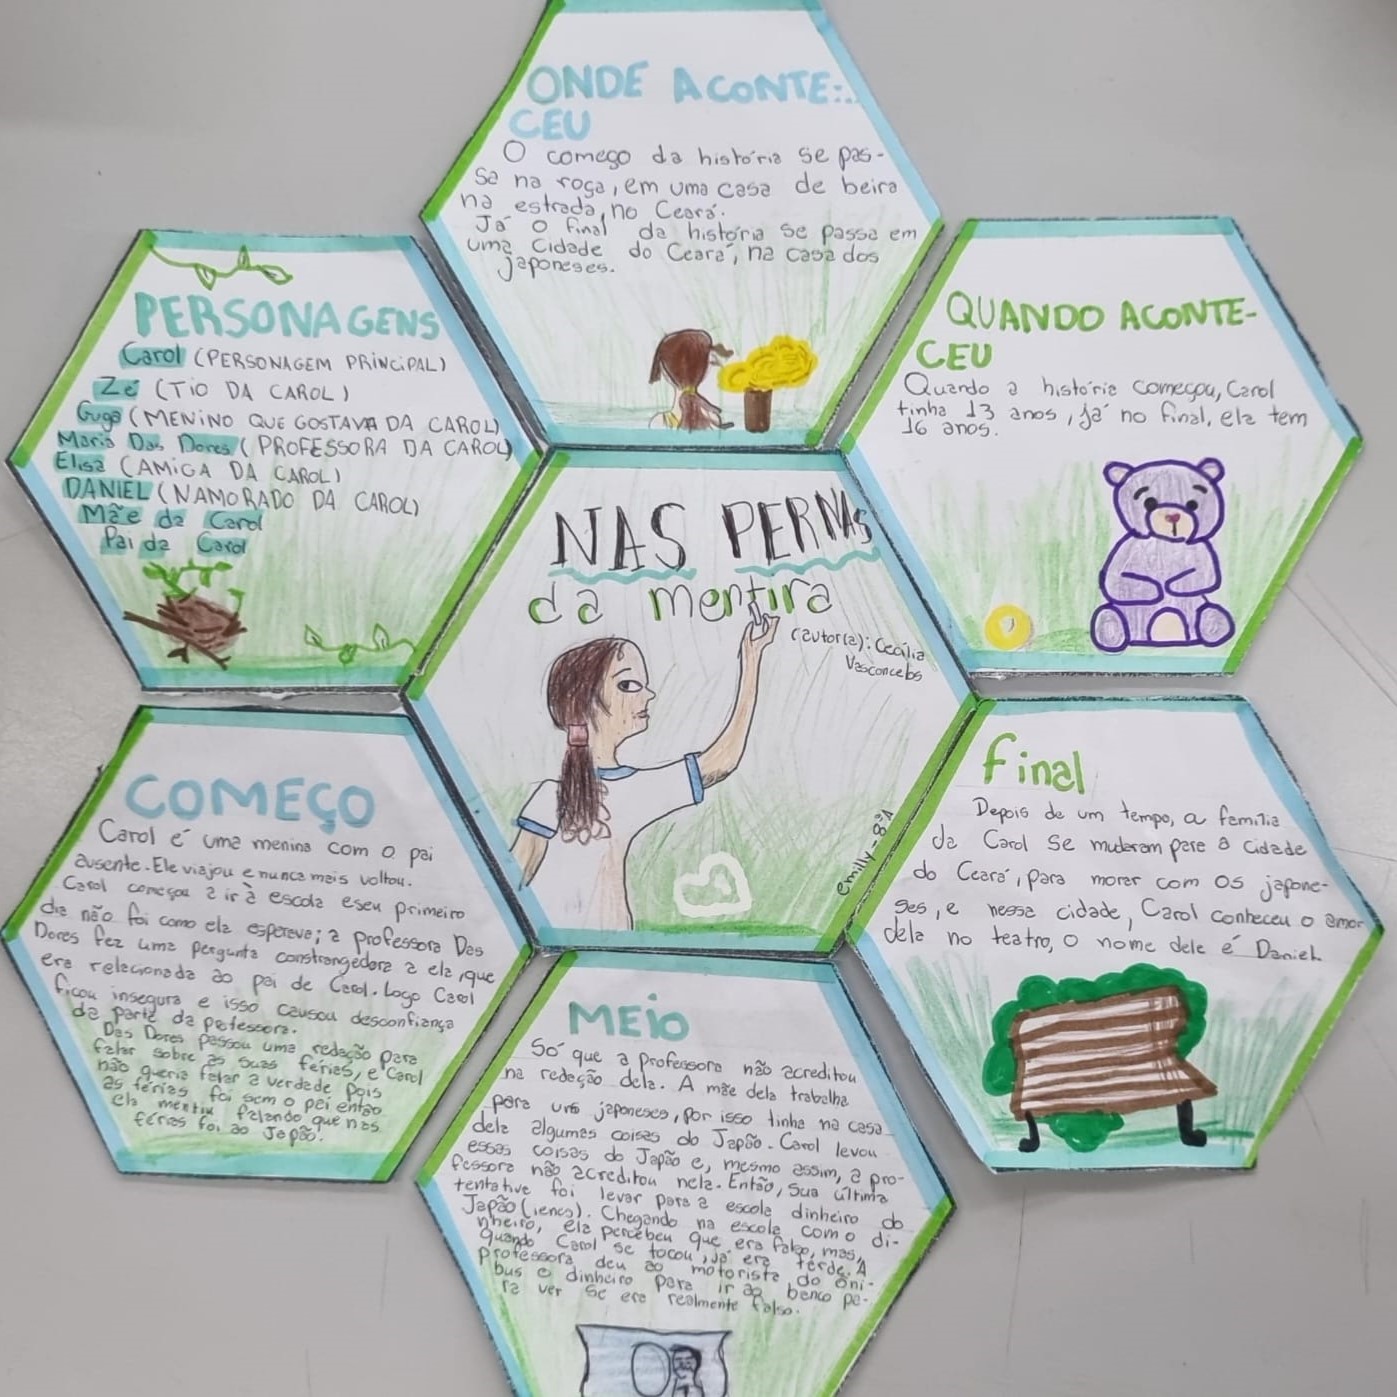 ONDE ACONTE-
CEU
O começo da história se pas-
sa na roça, em uma casa de beira
na estrada, no Ceará.
Já o final da história se passa em
uma Cidade do Ceará, na casa dos
japoneses.
PERSONAGENS
Carol (PERSONAGEM PRINCIPAL)
Zé (TIO DA CAROL)
Guga (MENINO QUE GOSTAVA DA CAROL)
Maria Das Dores (PROFESSORA DA CAROL)
Elisa (AMIGA DA CAROL)
DANIEL (NAMORADO DA CAROL)
Mãe da Carol
Pai da Carol
QUANDO ACONTE-
CEU
Quando a história começou, Carol
tinha 13 anos, já no final, ela tem
16 anos.
NAS PERNAS
da mentira
(autor(a): Cecília
Vasconcelos
emilly - 8ºA
COMEÇO
Carol é uma menina com o pai
ausente. Ele viajou e nunca mais voltou.
Carol começou a ir à escola e seu primeiro
dia não foi como ela esperava; a professora Das
Dores fez uma pergunta constrangedora a ela, que
era relacionada ao pai de Carol. Logo Carol
ficou insegura e isso causou desconfiança
da parte da pofessora.
Das Dores passou uma redação para
falar sobre as suas férias, e Carol
não queria falar a verdade pois
as férias foi sem o pai então
ela mentiu falando que nas
férias foi ao Japão.
MEIO
Só que a professora não acreditou
na redação dela. A mãe dela trabalha
para uns japoneses, por isso tinha na casa
dela algumas coisas do Japão. Carol levou
essas coisas do Japão e, mesmo assim, a pro-
fessora não acreditou nela. Então, sua última
tentativa foi levar para a escola dinheiro do
Japão (ienes). Chegando na escola com o di-
nheiro, ela percebeu que era falso, mas,
quando Carol se tocou, já era tarde. A
professora deu ao motorista do ôni-
bus o dinheiro para ir ao banco pa-
ra ver se era realmente falso.
final
Depois de um tempo, a família
da Carol se mudaram para a cidade
do Ceará, para morar com os japone-
ses, e nessa cidade, Carol conheceu o amor
dela no teatro, o nome dele é Daniel.